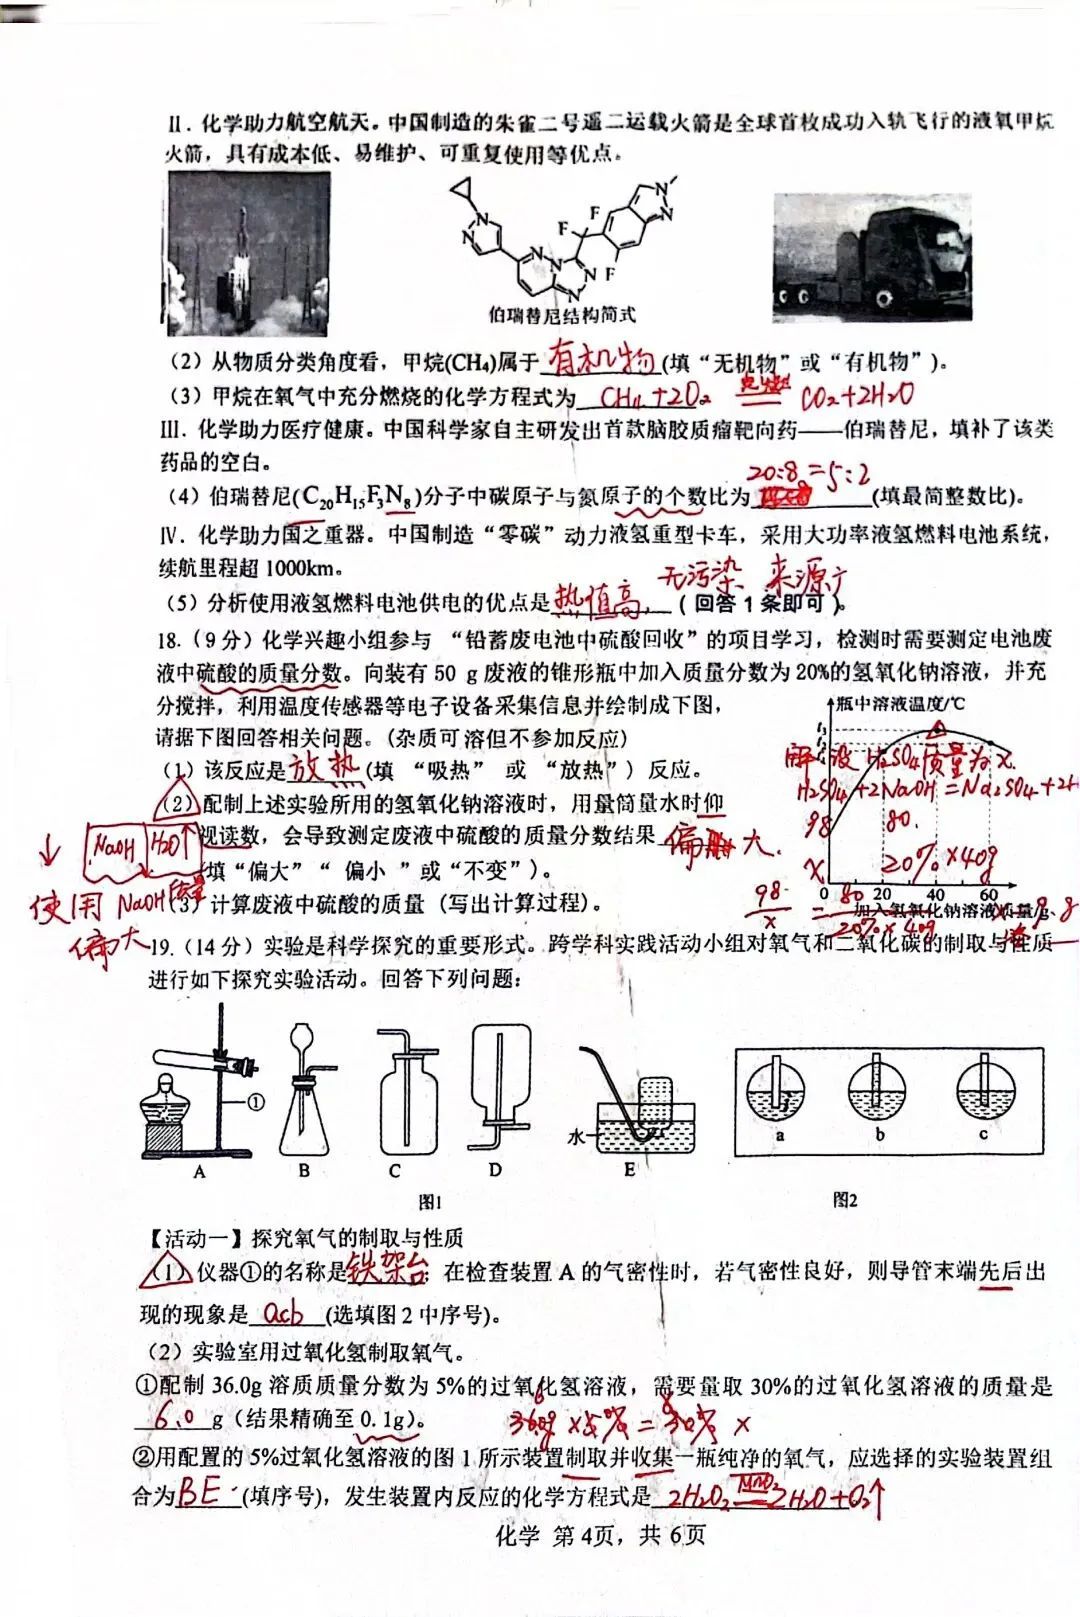 II. 化学助力航空航天。中国制造的朱雀二号遥二运载火箭是全球首枚成功入轨飞行的液氧甲烷
火箭，具有成本低、易维护、可重复使用等优点。
N
N
N
N
N
N
N
N
F
F
F
伯瑞替尼结构简式
（2）从物质分类角度看，甲烷(CH₄)属于 有机物 (填“无机物”或“有机物”)。
（3）甲烷在氧气中充分燃烧的化学方程式为 CH₄+2O₂ 点燃 CO₂+2H₂O
III. 化学助力医疗健康。中国科学家自主研发出首款脑胶质瘤靶向药——伯瑞替尼，填补了该类
药品的空白。
20:8=5:2
（4）伯瑞替尼(C₂₀H₁₅F₃N₈)分子中碳原子与氮原子的个数比为 (填最简整数比)。
IV. 化学助力国之重器。中国制造“零碳”动力液氢重型卡车，采用大功率液氢燃料电池系统，
续航里程超 1000km。
无污染、来源广
（5）分析使用液氢燃料电池供电的优点是 热值高、（回答 1 条即可）。
18.（9 分）化学兴趣小组参与 “铅蓄废电池中硫酸回收”的项目学习，检测时需要测定电池废
液中硫酸的质量分数。向装有 50 g 废液的锥形瓶中加入质量分数为 20%的氢氧化钠溶液，并充
分搅拌，利用温度传感器等电子设备采集信息并绘制成下图，
请据下图回答相关问题。（杂质可溶但不参加反应）
（1）该反应是 放热 (填 “吸热” 或 “放热”）反应。
（2）配制上述实验所用的氢氧化钠溶液时，用量筒量水时仰
视读数，会导致测定废液中硫酸的质量分数结果 偏 大.
(填“偏大”“ 偏小 ”或“不变”)。
（3）计算废液中硫酸的质量（写出计算过程）。
↓ NaOH H₂O↑
使用 NaOH 质量
偏大
瓶中溶液温度/℃
t₃
t₂
解 设 H₂SO₄质量为 x.
H₂SO₄+2NaOH=Na₂SO₄+2H
98 80.
x 20%×40g
98/x = 80/20%×40g
0 20 40 60
加入氢氧化钠溶液质量/g
19.（14 分）实验是科学探究的重要形式。跨学科实践活动小组对氧气和二氧化碳的制取与性质
进行如下探究实验活动。回答下列问题：
①
水
A B C D E
图1
a b c
图2
【活动一】探究氧气的制取与性质
（1）仪器①的名称是 铁架台；在检查装置 A 的气密性时，若气密性良好，则导管末端先后出
现的现象是 acb (选填图 2 中序号)。
（2）实验室用过氧化氢制取氧气。
①配制 36.0g 溶质质量分数为 5%的过氧化氢溶液，需要量取 30%的过氧化氢溶液的质量是
6.0 g（结果精确至 0.1g）。 36.0g×5%=30% x
②用配置的 5%过氧化氢溶液的图 1 所示装置制取并收集一瓶纯净的氧气，应选择的实验装置组
合为 BE (填序号)，发生装置内反应的化学方程式是 2H₂O₂ MnO₂ 2H₂O+O₂↑
化学 第 4页，共 6页